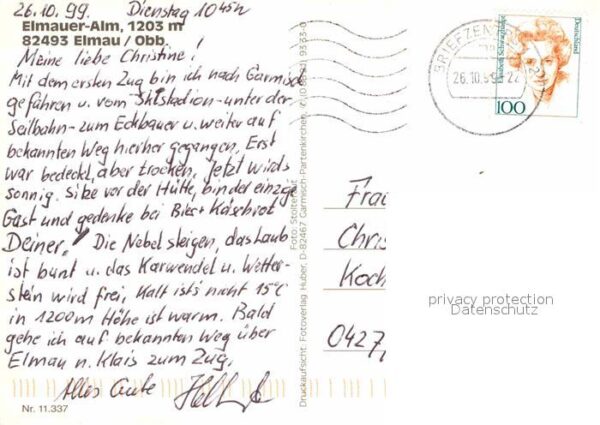 26.10.99. Dienstag 10 45 h
Elmauer-Alm, 1203 m
82493 Elmau / Obb.
Meine liebe Christine!
Mit dem ersten Zug bin ich nach Garmisch
gefahren u. vom Skistadion - unter der
Seilbahn - zum Eckbauer u. weiter auf
bekannten Weg hierher gegangen. Erst
war bedeckt, aber trocken. Jetzt wirds
sonnig. Sitze vor der Hütte, bin der einzige
Gast und gedenke bei Bier + Käsebrot
Deiner. Die Nebel steigen, das Laub
ist bunt u. das Karwendel u. Wetter-
stein wird frei, Kalt ist's nicht 15°C
in 1200 m Höhe ist warm. Bald
gehe ich auf bekannten Weg über
Elmau n. Klais zum Zug.
Alles Gute
Nr. 11.337
Druckaufsicht. Fotoverlag Huber, D-82467 Garmisch-Partenkirchen
BRIEFZEN
26.10.99-22
Deutschland
Elisabeth Schwarzhaupt
100
Frau
Chris
Koch
0427,
privacy protection
Datenschutz